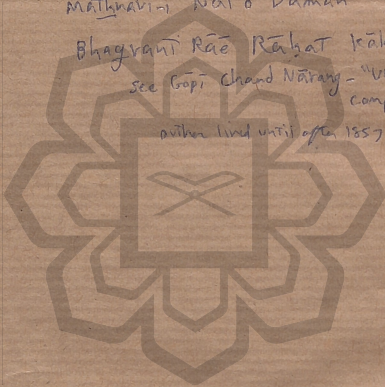 Mathnavi-i Nal o Daman
Bhagvant Rāē Rāḥat Kāk
see Gopi Chand Nārang - "U
comp
author lived until after 1857